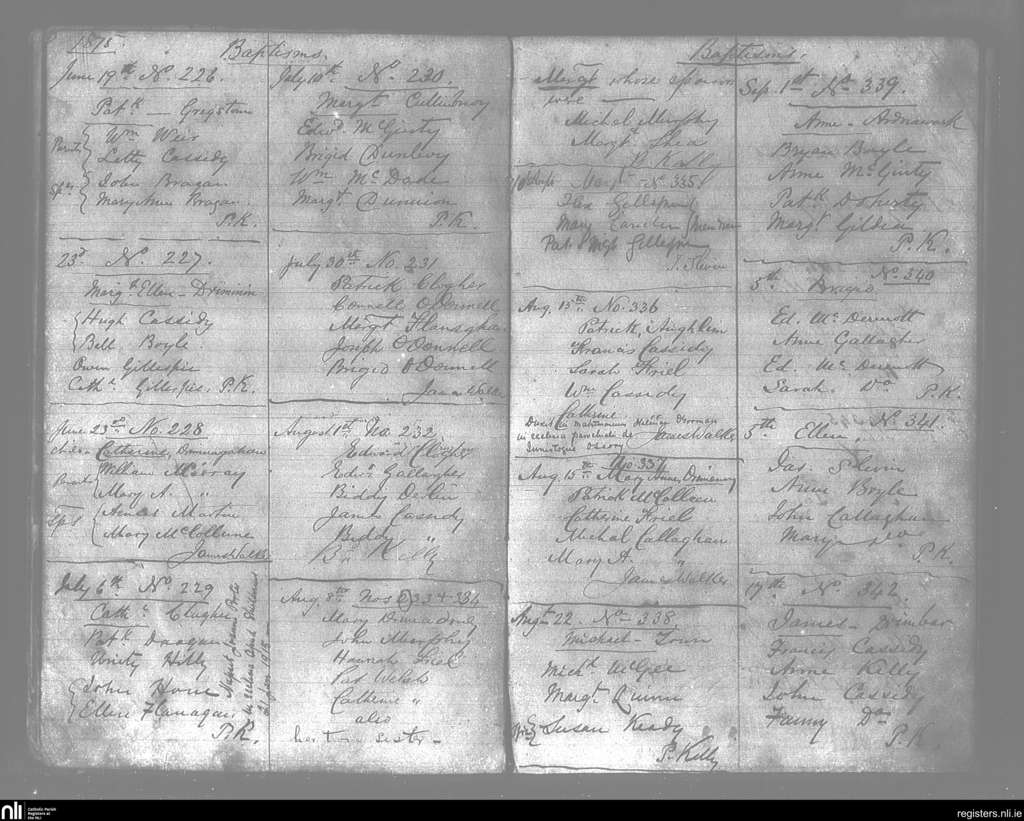 1875.
Baptisms.
June 19th No. 226.
Patk — Greystone
Parts Wm Weir
Letty Cassidy
Sps John Bragan
Mary Anne Bragan
P.K.
23d No. 227.
Margt Ellen - Drimnin
Hugh Cassidy
Bell Boyle
Owen Gillespie
Cathn Gillespie. P.K.
June 23rd No. 228
Catherine,
William McGroary
Mary A. "
Agnes Martin
Mary McCollum
James Walker
July 6th No. 229
Cathe Clugher
Patk
Unity Hilly
John Horn
Ellen Flanagan
P.K.
July 10th No. 230.
Margt
Edwd. McGinty
Brigid Dunlevy
Wm McDade
Margt Dunnion
P.K.
July 30th No. 231
Patrick Clogher
Connell O'Donnell
Margt
Joseph O'Donnell
Brigid O'Donnell
James Walker
August 1st No. 232
Edward
Edwd. Gallagher
Biddy Devlin
James Cassidy
Biddy "
B. Kelly
Aug. 8th Nos 233 + 234
Mary
John Murphy
Hannah Friel
Pat Welsh
Catherine "
also
her twin sister -
Baptisms.
Margt whose sponsors
were
Michel Murphy
Margt Shea
P. Kelly
Margt - No 335
Alex Gillespie
Mary
Pat & Mgt Gillespie
J. Slevin
Aug. 15th No. 336
Patrick,
Francis Cassidy
Sarah Friel
Wm Cassidy
Catherine
Duxit in matrimonium
in ecclesia parochiali de James Walker
Inistogue Ossory
No. 337
Aug. 15th Mary Anne,
Patrick McCollum
Catherine Friel
Michal Callaghan
Mary A. "
James Walker
Augt 22. No 338.
Michael - Town
Michl McGee
Margt Quinn
Susan Keady
P. Kelly
Sep. 1st No 339.
Anne - Ardnawark
Bryan Boyle
Anne McGinty
Patk Doherty
Margt Gildea
P.K.
No 340
5th
Ed. McDermott
Anne Gallagher
Ed. McDermott
Sarah. Do
P.K.
No 341.
5th Ellen
Jas. Slevin
Anne Boyle
John Callaghan
Mary Do
P.K.
17th No. 342.
James - Drimbar
Francis Cassidy
Anne Kelly
John Cassidy
Fanny Do
P.K.
nli
Catholic Parish
Registers at
the NLI
registers.nli.ie